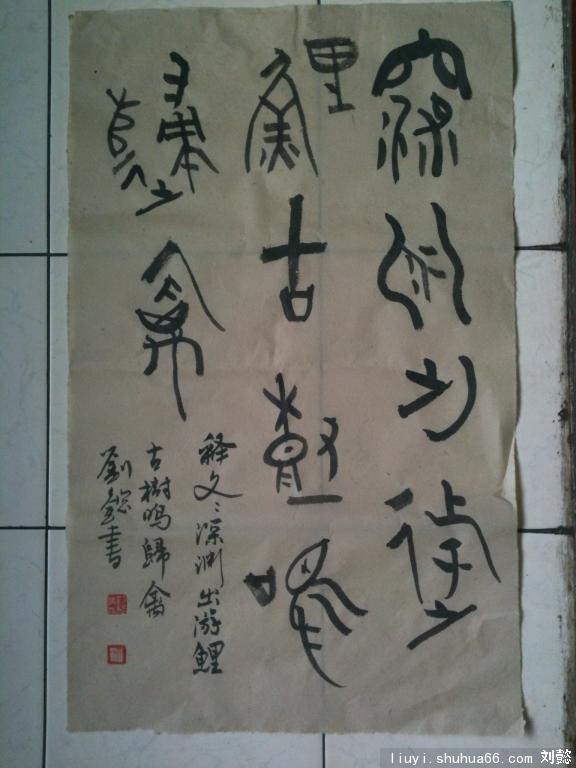 深淵出游
鯉古樹鳴
歸禽
释文:深渊出游鲤
古樹鸣歸禽
劉懿書
liuyi.shuhua66.com 刘懿